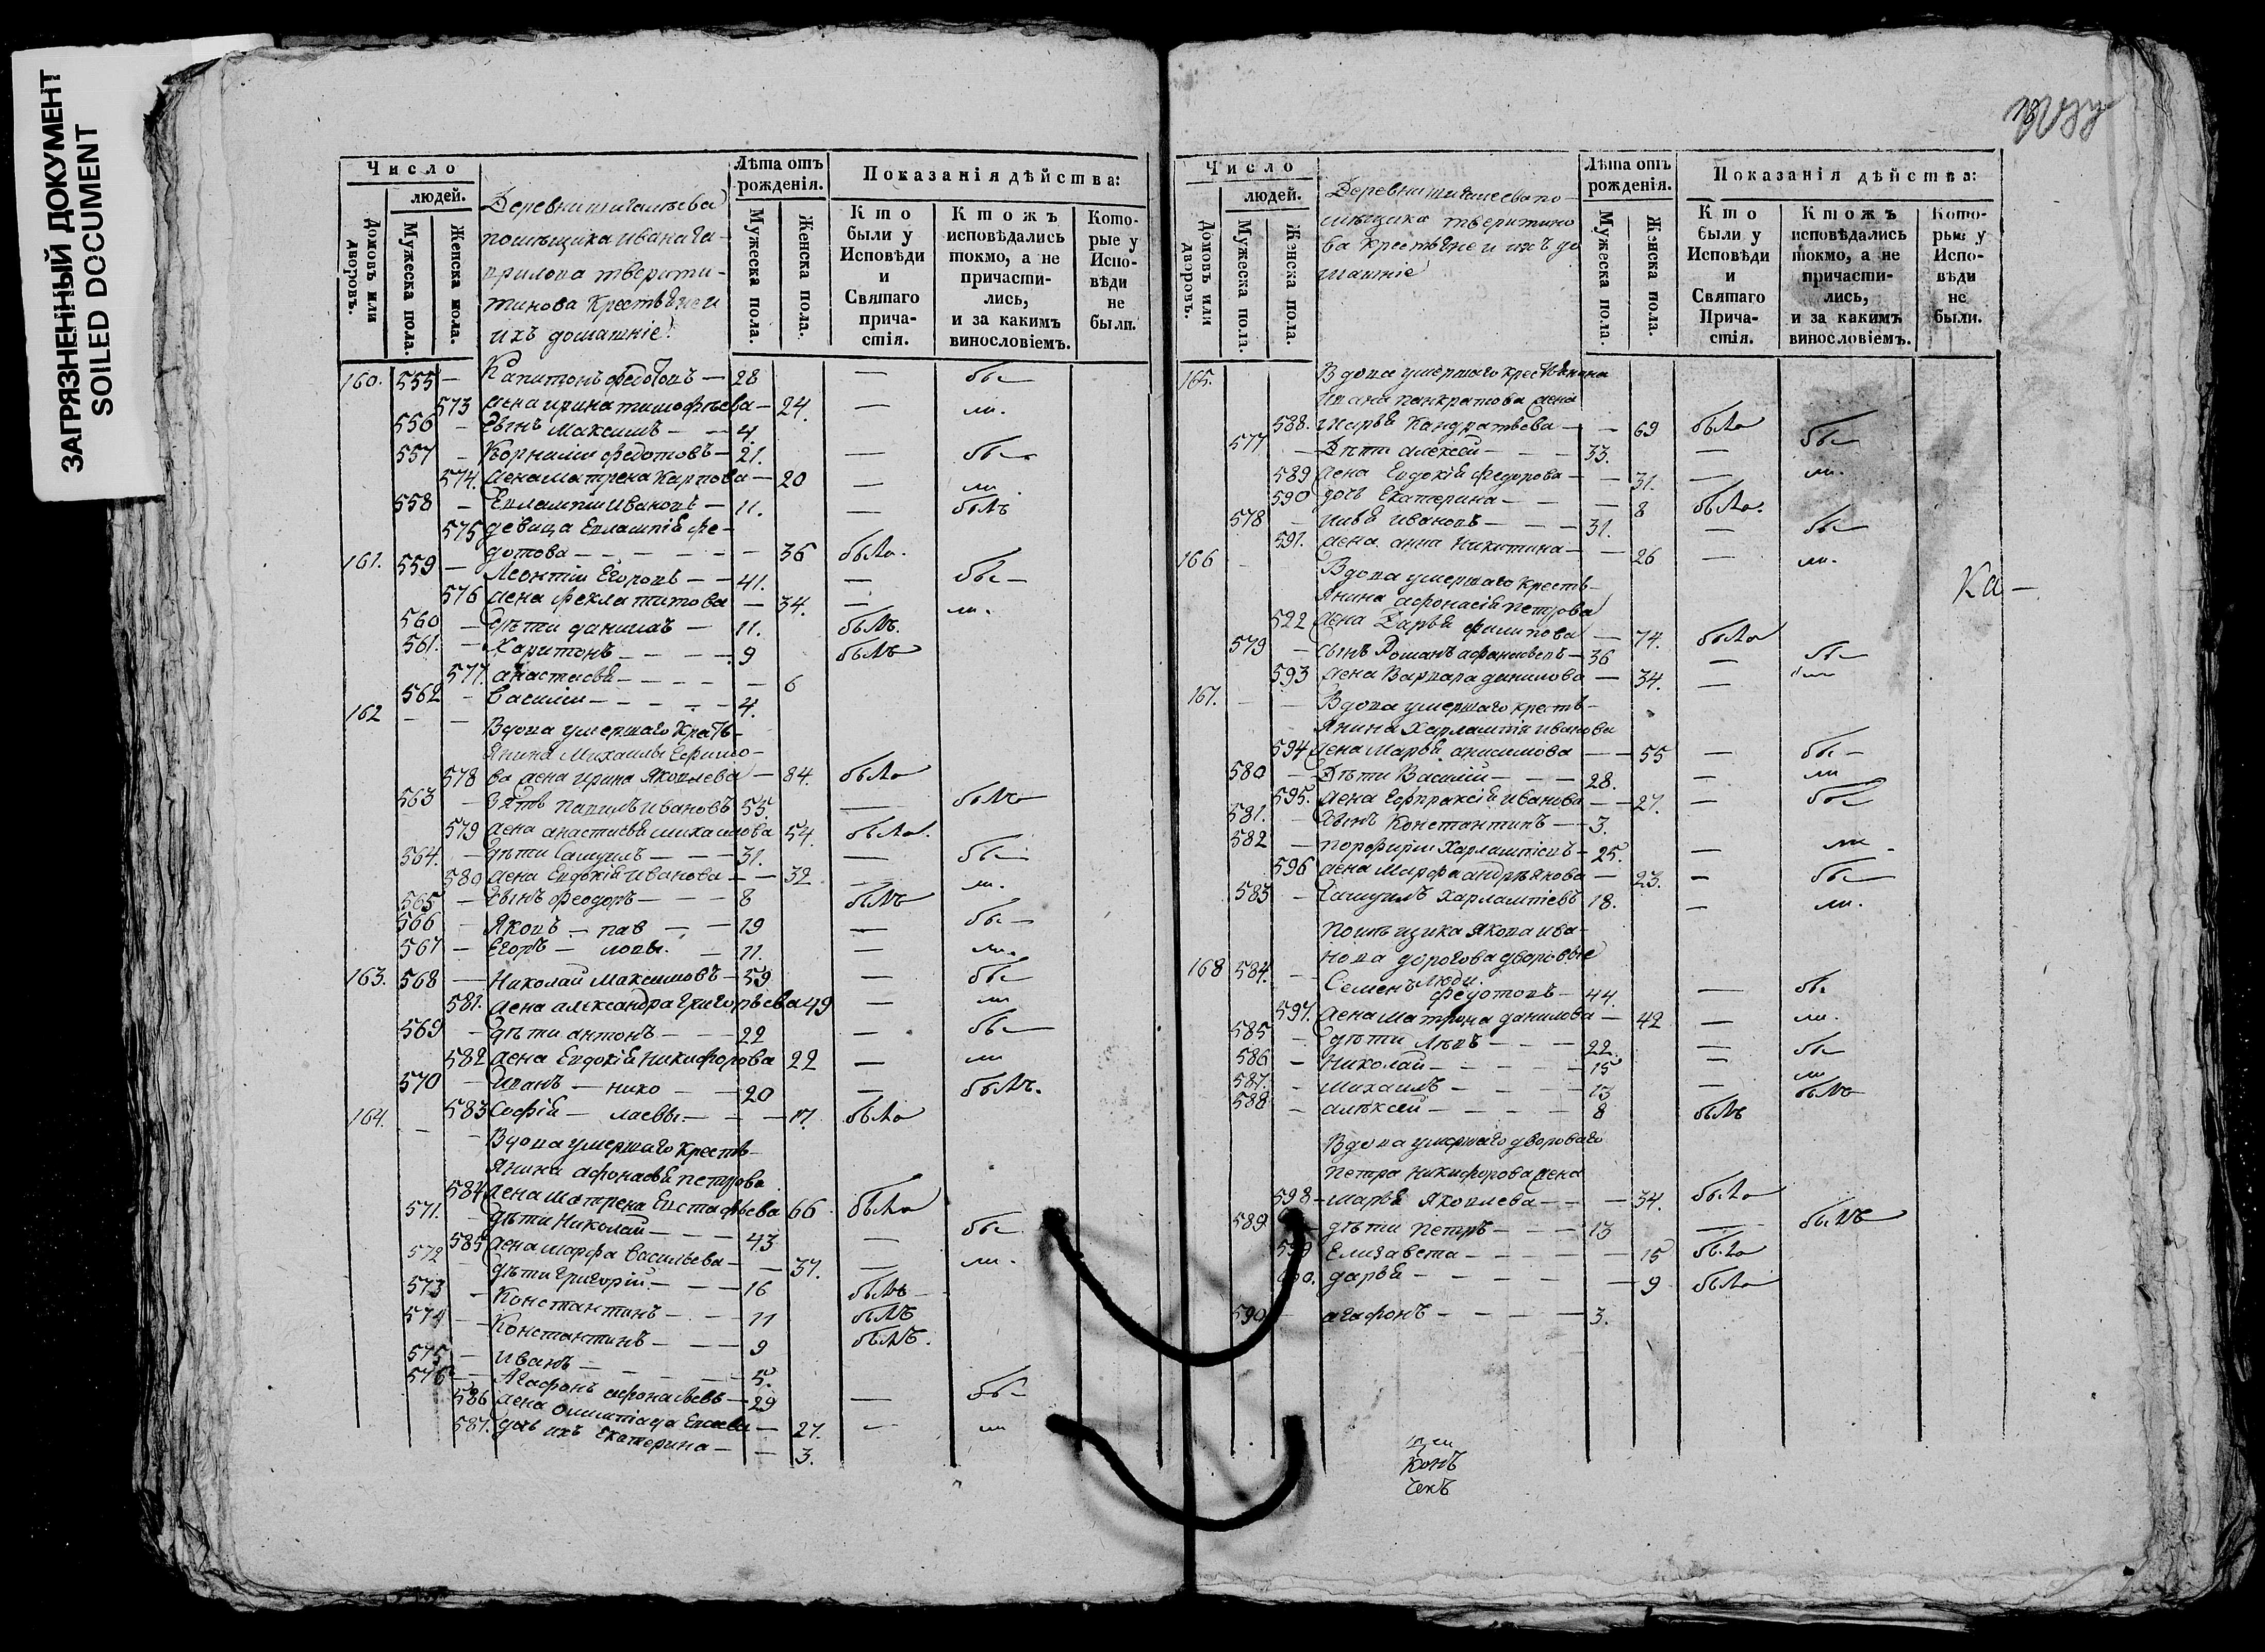 ЗАГРЯЗНЕННЫЙ ДОКУМЕНТ
SOILED DOCUMENT
Число
людей.
Домовъ или дворовъ.
Мужеска пола.
Женска пола.
Деревни
помѣщика Ивана Га-
врилова Тверити-
тинова Крестьяне и
ихъ домашніе
Лѣта отъ рожденія.
Мужеска пола.
Женска пола.
Показанія дѣйства:
Кто были у Исповѣди и Святаго причастія.
Ктожъ исповѣдались токмо, а не причасти-лись, и за какимъ винословіемъ.
Кото-рые у Испо-вѣди не были.
160. 555 — Капитонъ Федотовъ — 28 — бы—
573 жена Ирина Тимофѣева — 24. — ли.
556 — Сынъ Максимъ — — 4.
557 — Корнилии Федотовъ — 21. — бы—
574. жена Матрена Карпова — 20 — ли
558 — Евлампіи Ивановъ — 11. — былъ
575 девица Евлампія Фе-
дотова — — — — — 36 была.
161. 559 — Леонтіи Егоровъ — — 41. — бы—
576 жена Фекла Титова — 34. — ли.
560 — дѣти Данилъ — 11. былъ.
561. — Харитонъ — — — — 9 былъ
577. Анастасья — — — — 6
562 — Василіи — — — — 4.
162 — — Вдова умершаго Кресть-
янина Михаилы Ефимо-
578 ва жена Ирина Яковлева — 84. была
563 — Зять Павилъ Ивановъ 55. — былъ
579 жена Анастасья Михаилова 54. была.
564. — дѣти Самуилъ — — — 31. — бы—
580 жена Евдокія Иванова — — 32 — ли.
565 — Сынъ Феодоръ — — — 8 былъ
566 — Яковъ — пав — — 19 — бы—
567 — Егоръ — ловы. — 11. — ли.
163. 568 — Николай Максимовъ — 59 — бы—
581. жена Александра Григорьева 49 — ли
569 — дѣти Антонъ — — — 22 — бы—
582 жена Евдокія Никифорова 22 — ли
570 — Иванъ — нико — — 20 — былъ.
583 Софія — лаевы — — — 17. была
164. — — Вдова умершаго Кресть-
янина Афонасья Петрова
584 жена Матрена Евстафьева 66 была
571. — дѣти Николай — — — 43 — бы
585 жена Марфа Васильева — — 37. — ли.
572 — дѣти Григорій — — — 16 былъ —
573 — Константинъ — — — 11 былъ
574 — Константинъ — — — 9 былъ.
575 — Иванъ — — — — — 5.
576 — Агафонъ Афонасьевъ — 29 — бы—
586 жена — 27. — ли
587. дочь ихъ Екатерина — — 3.
Число
людей.
Домовъ или дворовъ.
Мужеска пола.
Женска пола.
Деревни по-
мѣщика Тверитино-
ва Крестьяне и ихъ до
машніе
Лѣта отъ рожденія.
Мужеска пола.
Женска пола.
Показанія дѣйства:
Кто были у Исповѣди и Святаго Прича-стія.
Ктожъ исповѣдались токмо, а не причасти-лись, и за какимъ винословіемъ.
Кото-рые у Испо-вѣди не были.
165. Вдова умершаго крестьянина
Ивана Панкратова жена
588. Марья Кандратьева — — 69 была
577 — Дѣти Алексей — — — 33. — бы—
589 жена Евдокія Федорова — — 31. — ли.
590 дочь Екатерина — — — 8 была.
578 — Илья Ивановъ — — — 31. — бы—
591. жена Анна Никитина — — 26 — ли.
166 — — Вдова умершаго Кресть-
янина Афонасія Петрова
592 жена Дарья Филипова — 74. была
579 — сынъ Романъ Афанасьевъ — 36 — бы—
593 жена Варвара Данилова — 34. — ли
Ка —
167. — — Вдова умершаго кресть-
янина Харлампія Иванова
594 жена Марья Анисимова — — 55 — бы—
580 — Дѣти Василій — — — 28. — ли
595. жена Евпраксія Иванова — — 27. — бы
581. — Сынъ Константинъ — — 3.
582 — Порфирии Харлампіевъ — 25. — ли.
596 жена Марфа Андрѣянова — 23. — бы
583 — Самуилъ Харлампіевъ 18. — ли.
Помѣщика Якова Ива-
нова Дорогова дворовые
люди.
168 584. — Семенъ Федотовъ — 44. — бы
597. жена Матрона Данилова — 42 — ли.
585 — дѣти Левъ — — — 22. — бы
586 — Николай — — — — 15 — ли
587. — Михаилъ — — — — 13 — былъ
588 — Алѣксей — — — — 8 былъ
Вдова умершаго двороваго
Петра Никифорова жена
598 — Марья Яковлева — — — 34. была
589 — дѣти Петръ — — — 13 — былъ
599 Елизавета — — — — 15 была
600. Дарья — — — — — 9 была
590 — Агафонъ — — — — 3.